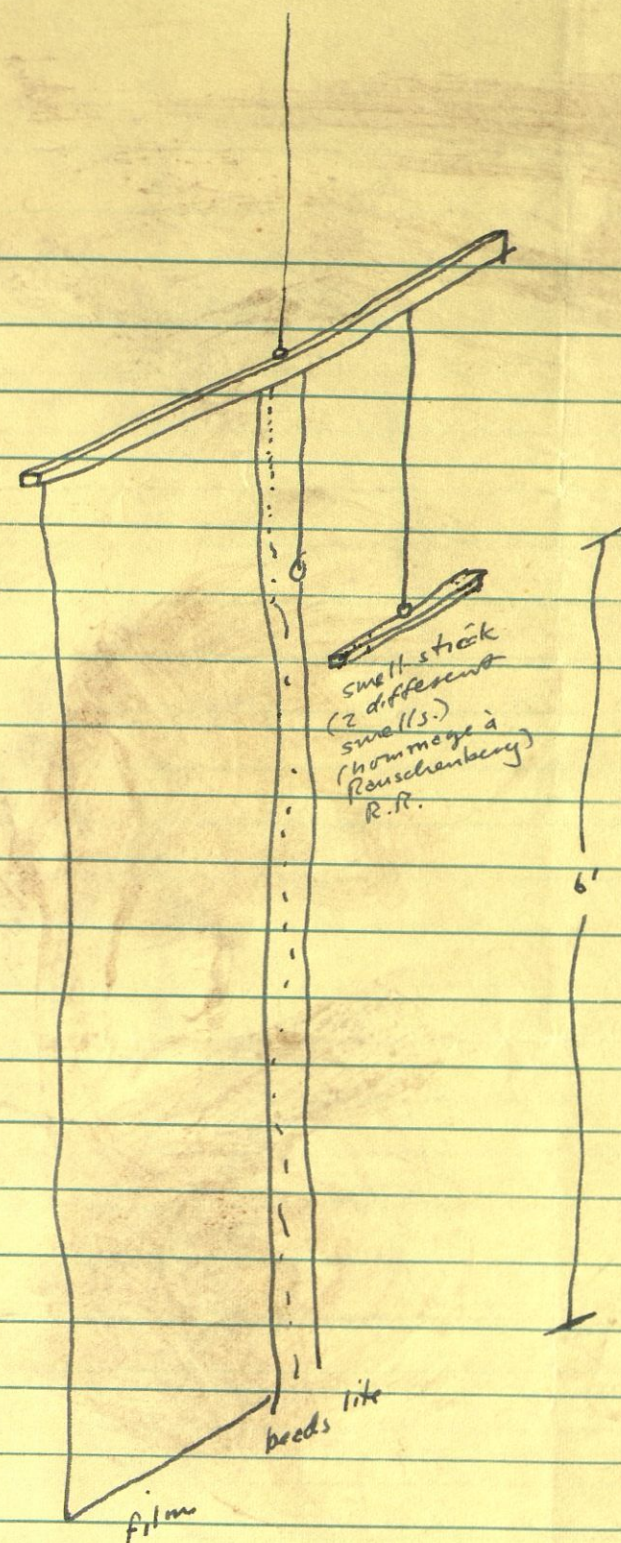 smell stick
(2 different
smells.)
(hommage à
Rauschenberg)
R.R.
6'
beads lite
film